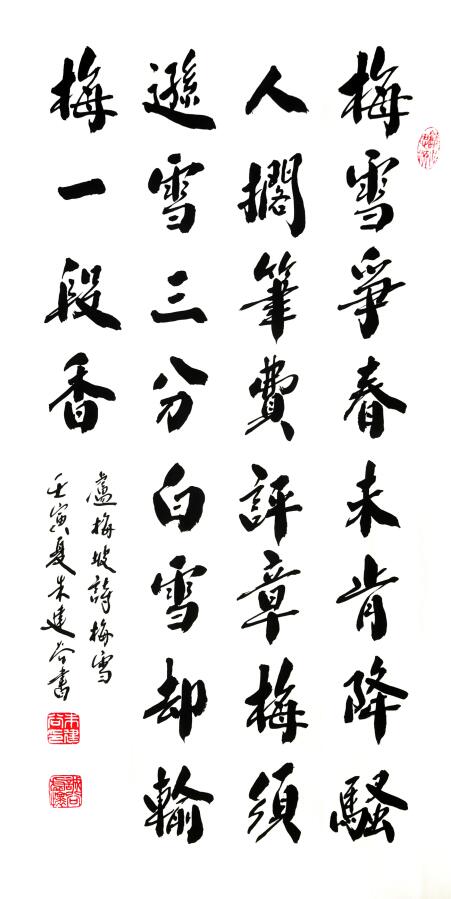 梅雪爭春未肯降騷
人擱筆費評章梅須
遜雪三分白雪却輸
梅一段香
盧梅坡詩梅雪
壬寅夏朱建谷書
朱建谷印